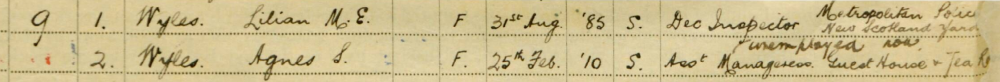 9 1. Wyles. Lilian M. E. F 31st Aug. '85 S. Dec Inspector Metropolitan Police
New Scotland Yard
unemployed now
2. Wyles. Agnes S. F. 25th Feb. '10 S. Asst Manageress. Guest House + Tea